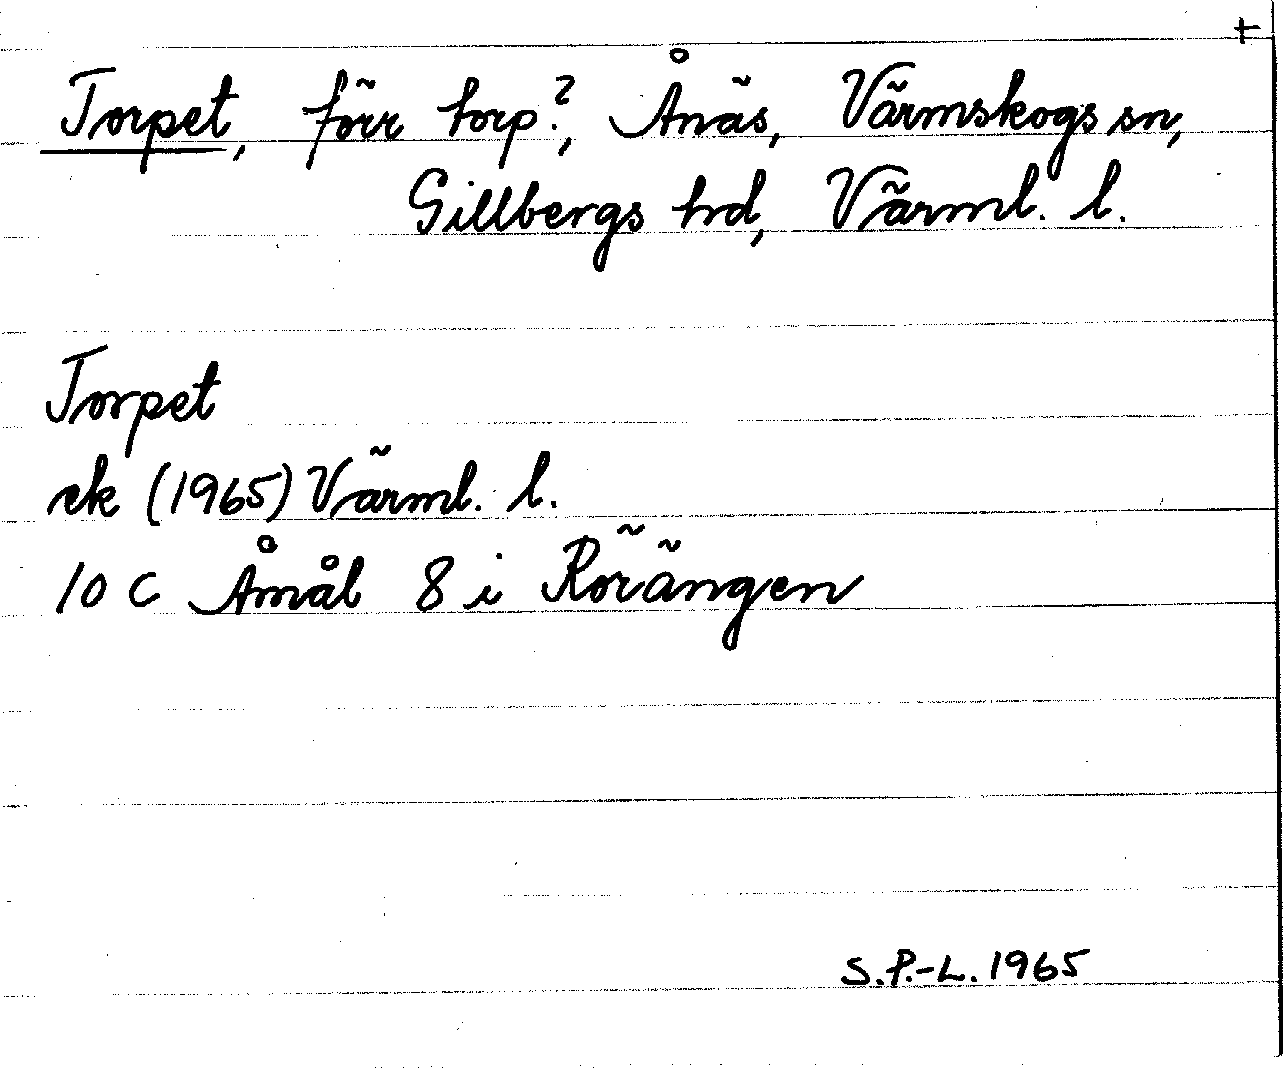 +
Torpet, förr torp?, Ånäs, Värmskogs sn,
Gillbergs hd, Värml. l.
Torpet
ek (1965) Värml. l.
10 C Åmål 8 i Rörängen
S.P.-L. 1965